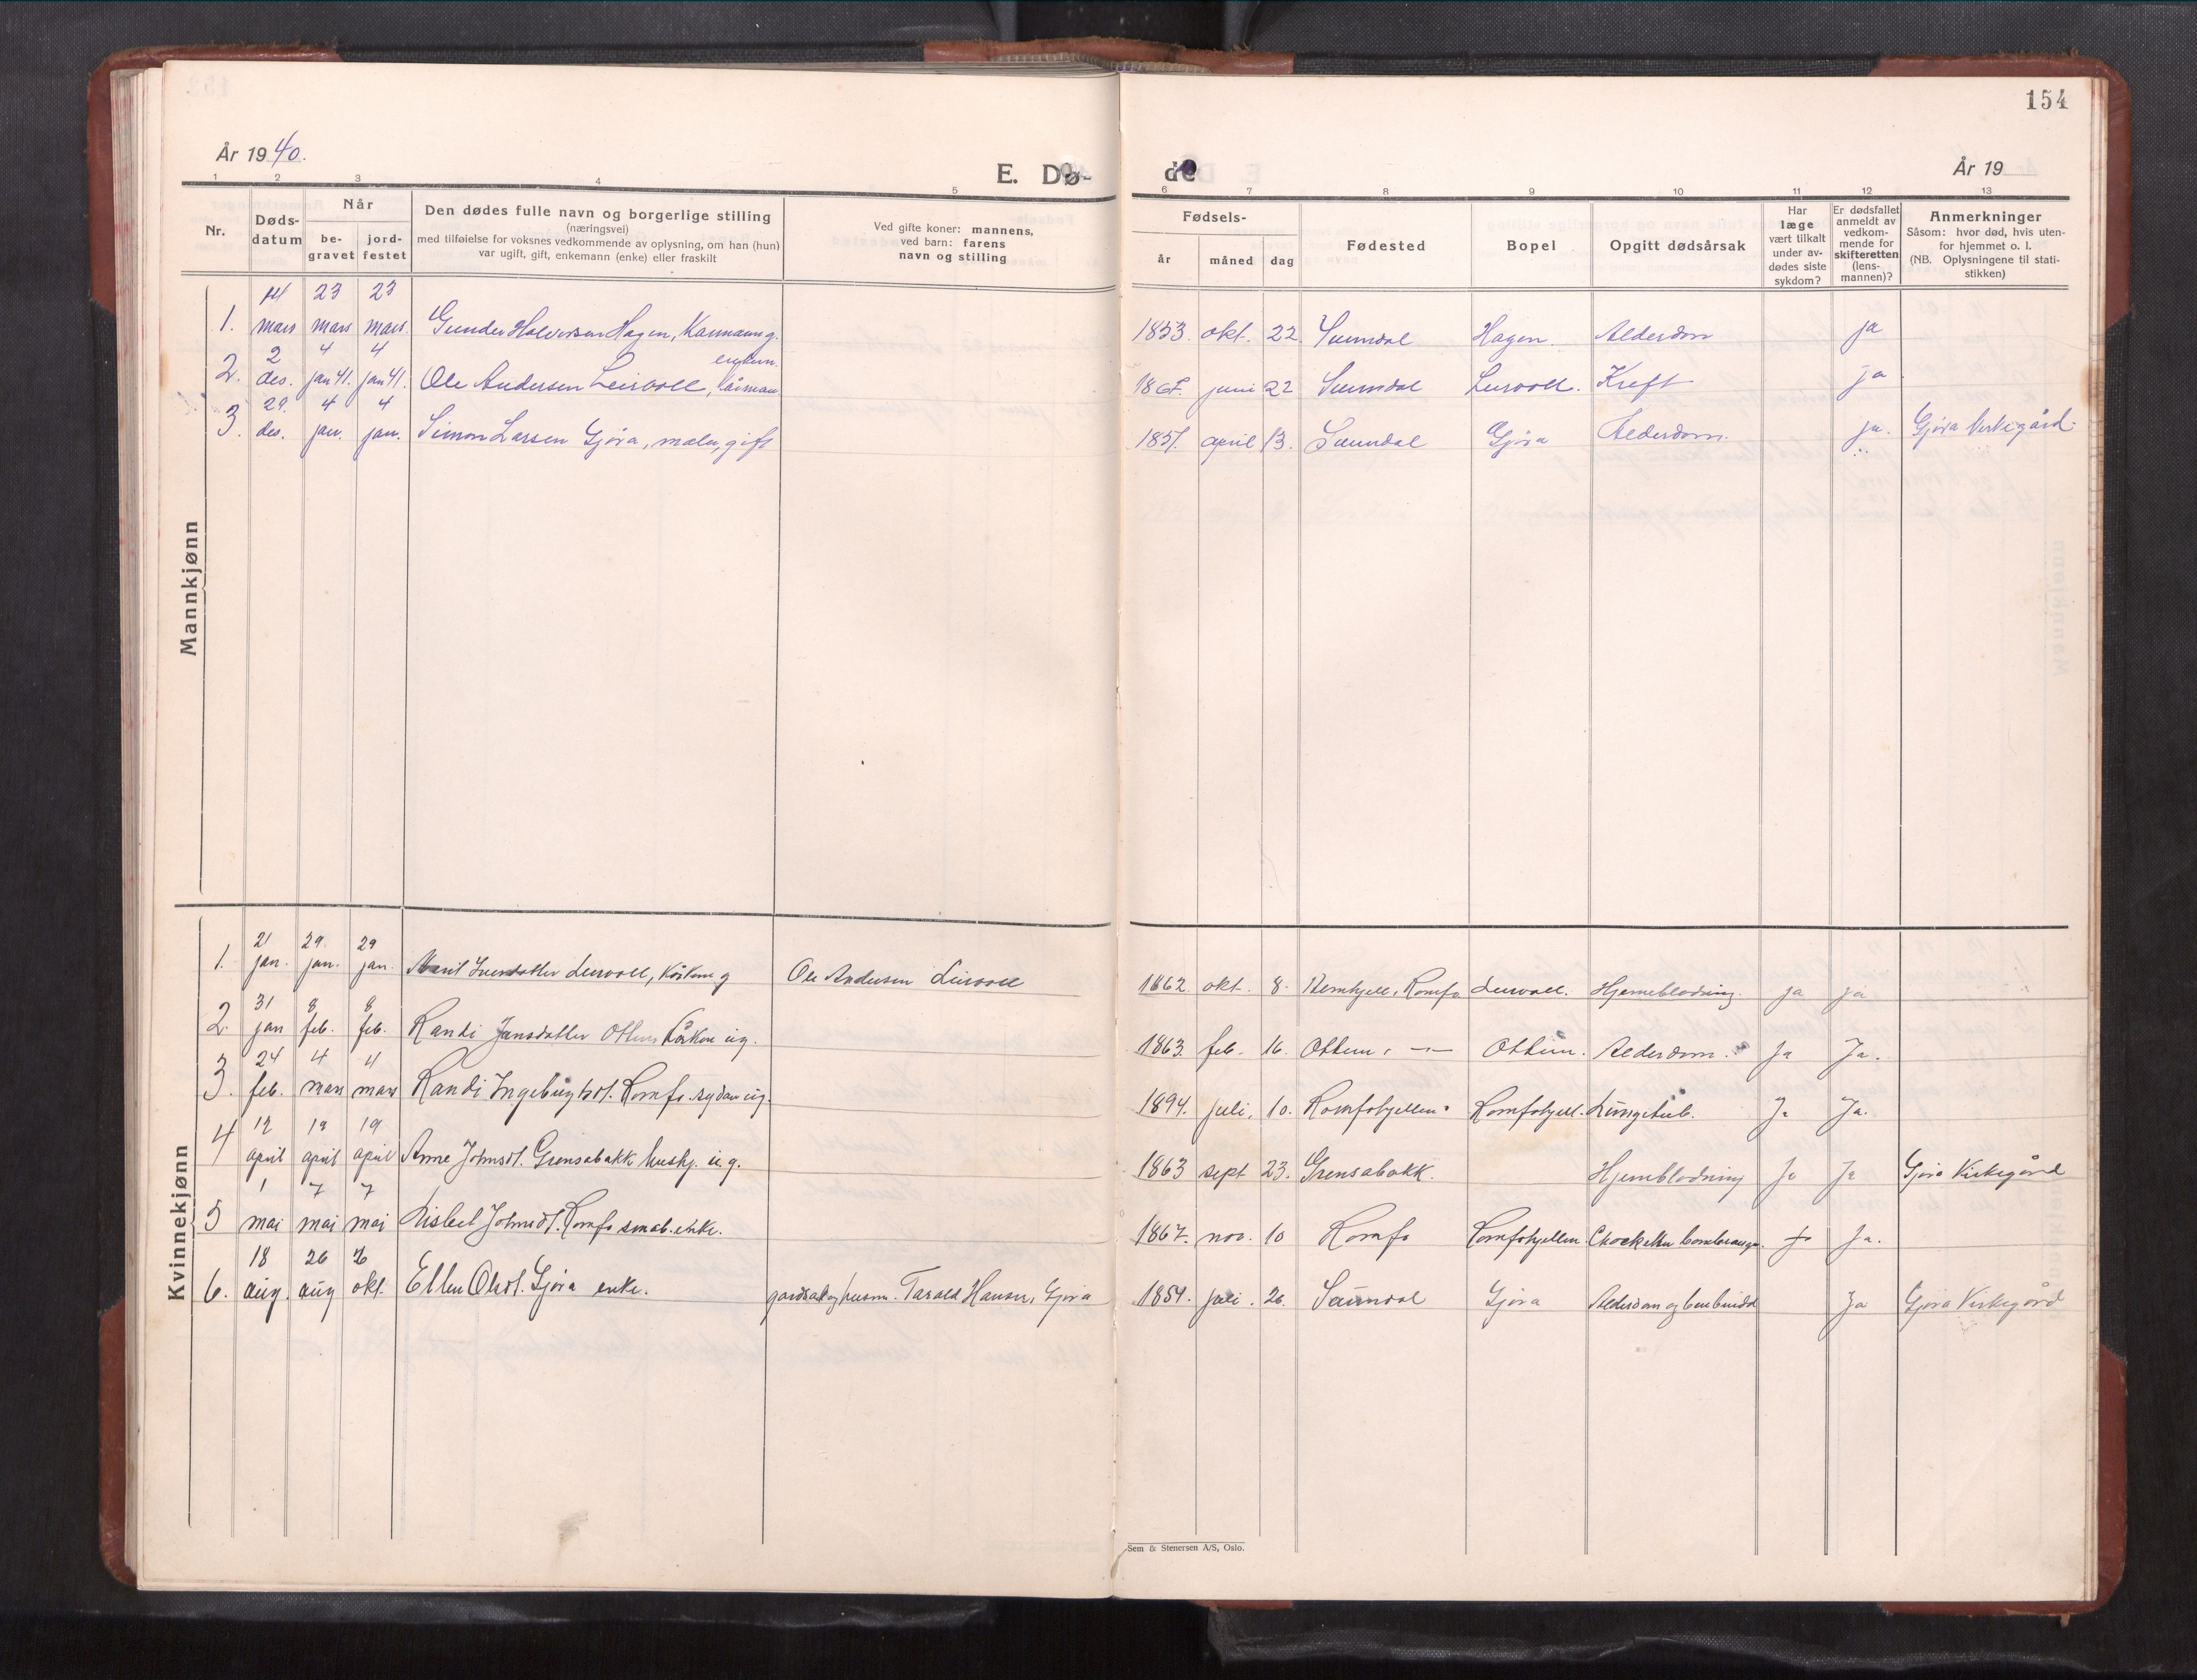 154
År 1940.
E. Dø-
de
År 19
1 2 3 4 5 6 7 8 9 10 11 12 13
Nr.
Døds-
datum
Når
be-
gravet
jord-
festet
Den dødes fulle navn og borgerlige stilling
(næringsvei)
med tilføielse for voksnes vedkommende av oplysning, om han (hun)
var ugift, gift, enkemann (enke) eller fraskilt
Ved gifte koner: mannens,
ved barn: farens
navn og stilling
Fødsels-
år måned dag
Fødested
Bopel
Opgitt dødsårsak
Har
læge
vært tilkalt
under av-
dødes siste
sykdom?
Er dødsfallet
anmeldt av
vedkom-
mende for
skifteretten
(lens-
mannen)?
Anmerkninger
Såsom: hvor død, hvis uten-
for hjemmet o. l.
(NB. Oplysningene til stati-
stikken)
Mannkjønn
14 23 23
1. mars mars mars. Gunder Halvorsen Hagen, g. 1853. okt. 22. Sunndal Hagen. Alderdom ja
2 4 4 enkem.
2. des. jan 41. jan 41. Ole Andersen Leirvoll, kårmann juni 22 Sunndal Leirvoll. Kreft ja
29. 4 4
3. des. jan. jan. Simon Larsen Gjøra, maler, gift 1857. april 13. Sunndal Gjøra Alderdom. ja. Gjøra kirkegård.
Kvinnekjønn
21 29. 29
1. jan. jan. jan. Marit Leirvoll, g Ole Andersen Leirvoll 1862 okt. 8. Romfo Leirvoll. Hjerneblødning. ja ja
31 8 8
2. jan feb. feb. Randi Jansdatter Ottem ug. 1863. feb. 16. Ottem, -"- Ottem. Alderdom. Ja Ja.
24 4 4
3. feb. mars mars Randi Ingebrigtsdt. Romfo ug. 1894. juli. 10. Romfohjellen. Romfohjell. Lungetub. Ja Ja.
12 19 19
4 april april april Anne Johnsdt. Grensabakk hushj. u.g. 1863 sept 23. Grensabakk. Hjerneblødning Ja Ja Gjøra Kirkegård
1 7 7
5 mai mai mai Lisbet Johnsdt. Romfo småb. enke. 1867. nov. 10 Romfo Romfohjellen. Chock etter Ja Ja.
18 26
6. aug. aug okt. Ellen Olsdt. Gjøra enke. Tarald Hansen, Gjøra 1854. juli. 26. Sunndal Gjøra Alderdom og benbrudd Ja Gjøra Kirkegård
Sem & Stenersen A/S, Oslo.